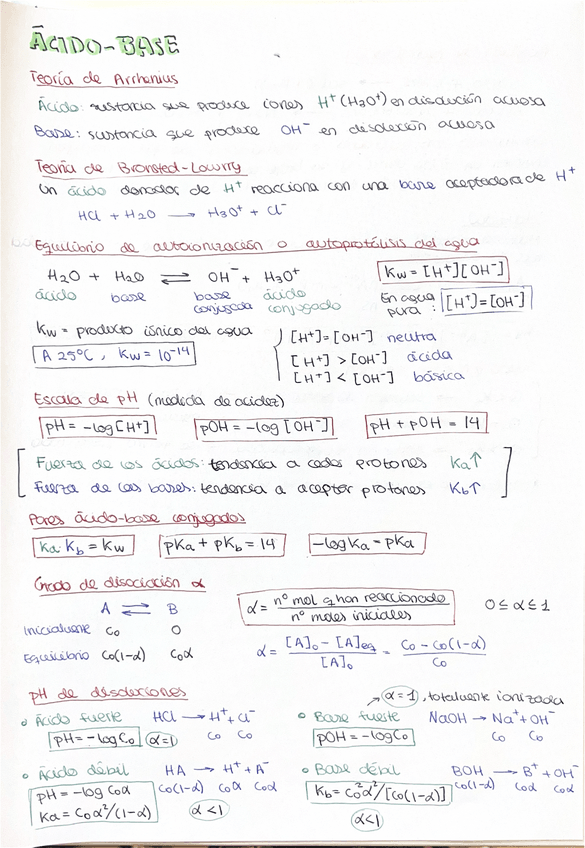 ÁCIDO-BASE
Teoría de Arrhenius
Ácido: sustancia que produce iones H⁺ (H₃O⁺) en disolución acuosa
Base: sustancia que produce OH⁻ en disolución acuosa
Teoría de Bronsted-Lowrry
Un ácido donador de H⁺ reacciona con una base aceptadora de H⁺
HCl + H₂O → H₃O⁺ + Cl⁻
Equilibrio de autoionización o autoprotólisis del agua
H₂O + H₂O ⇌ OH⁻ + H₃O⁺ Kw = [H⁺][OH⁻]
ácido base base conjugada ácido conjugado En agua pura: [H⁺]=[OH⁻]
Kw = producto iónico del agua
A 25ºC, Kw = 10⁻¹⁴
[H⁺]=[OH⁻] neutra
[H⁺] > [OH⁻] ácida
[H⁺] < [OH⁻] básica
Escala de pH (medida de acidez)
pH = -log[H⁺] pOH = -log[OH⁻] pH + pOH = 14
Fuerza de los ácidos: tendencia a ceder protones Ka↑
Fuerza de las bases: tendencia a aceptar protones Kb↑
Pares ácido-base conjugados
Ka·Kb = Kw pKa + pKb = 14 -logKa = pKa
Grado de disociación α
A ⇌ B α = nº mol q han reaccionado / nº moles iniciales 0 ≤ α ≤ 1
Inicialmente C₀ 0
Equilibrio C₀(1-α) C₀α α = [A]₀ - [A]eq / [A]₀ = C₀ - C₀(1-α) / C₀
pH de disoluciones
α=1, totalmente ionizada
Ácido fuerte HCl → H⁺ + Cl⁻ Base fuerte NaOH → Na⁺ + OH⁻
pH = -logC₀ α=1 C₀ C₀ pOH = -logC₀ C₀ C₀
Ácido débil HA → H⁺ + A⁻ Base débil BOH → B⁺ + OH⁻
pH = -log C₀α C₀(1-α) C₀α C₀α Kb = C₀²α²/[C₀(1-α)] C₀(1-α) C₀α C₀α
Ka = C₀α²/(1-α) α<1 α<1